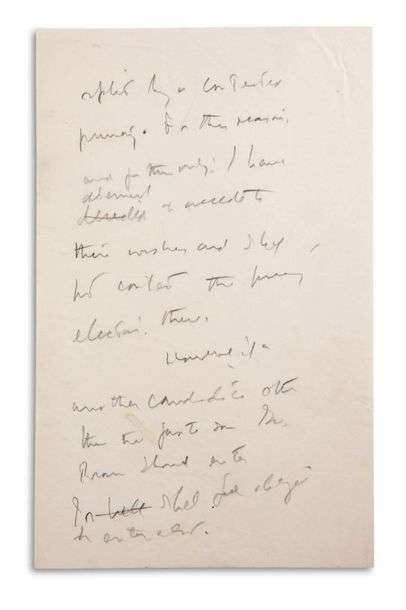 split by a contested
primary. For this reason,
and for this only: I have
determined
decided to accede to
their wishes and shall
not contest the primary
election there.
However if a
another candidate other
than the favorite son Gov.
Brown should enter
I shall feel obliged
to enter also.